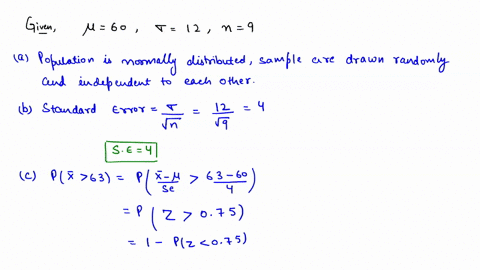 Given, μ = 60, σ = 12, n = 9
(a) Population is normally distributed, sample are drawn randomly
and independent to each other.
(b) Standard error = σ/√n = 12/√9 = 4
S.E = 4
(c) P(x̄ > 63) = P( (x̄ - μ)/Se > (63 - 60)/4 )
= P( Z > 0.75 )
= 1 - P(Z < 0.75)